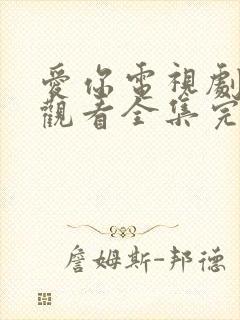 愛你電視劇
觀看全集完
詹姆斯-邦德